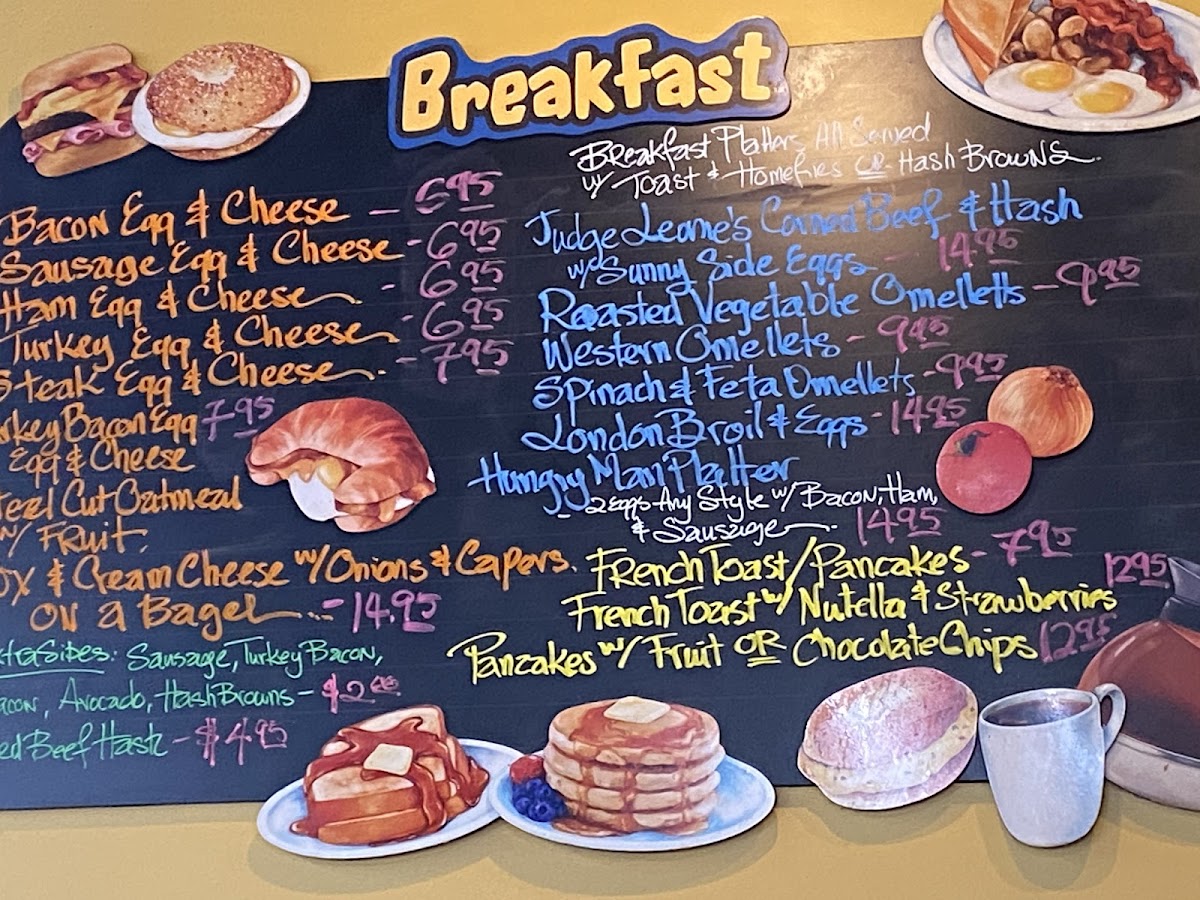 Breakfast
Bacon Egg & Cheese - 6.95
Sausage Egg & Cheese - 6.95
Ham Egg & Cheese - 6.95
Turkey Egg & Cheese - 6.95
Steak Egg & Cheese - 7.95
rkey Bacon Egg 7.95
Egg & Cheese
teel Cut Oatmeal
w/ Fruit.
ox & Cream Cheese w/ Onions & Capers.
on a Bagel - 14.95
xtra Sides: Sausage, Turkey Bacon,
acon, Avocado, Hash Browns - $2.00
ed Beef Hash - $4.95
Breakfast Platters All Served
w/ Toast & Homefries or Hash Browns
Judge Leone's Corned Beef & Hash
w/ Sunny Side Eggs - 14.95
Roasted Vegetable Omelletts - 9.95
Western Omellets - 9.95
Spinach & Feta Omellets - 9.95
London Broil & Eggs - 14.95
Hungry Man Platter
- 2 Eggs Any Style w/ Bacon, Ham,
& Sausage 14.95
French Toast/Pancakes - 7.95
French Toast w/ Nutella & Strawberries 12.95
Pancakes w/ Fruit or Chocolate Chips 12.95